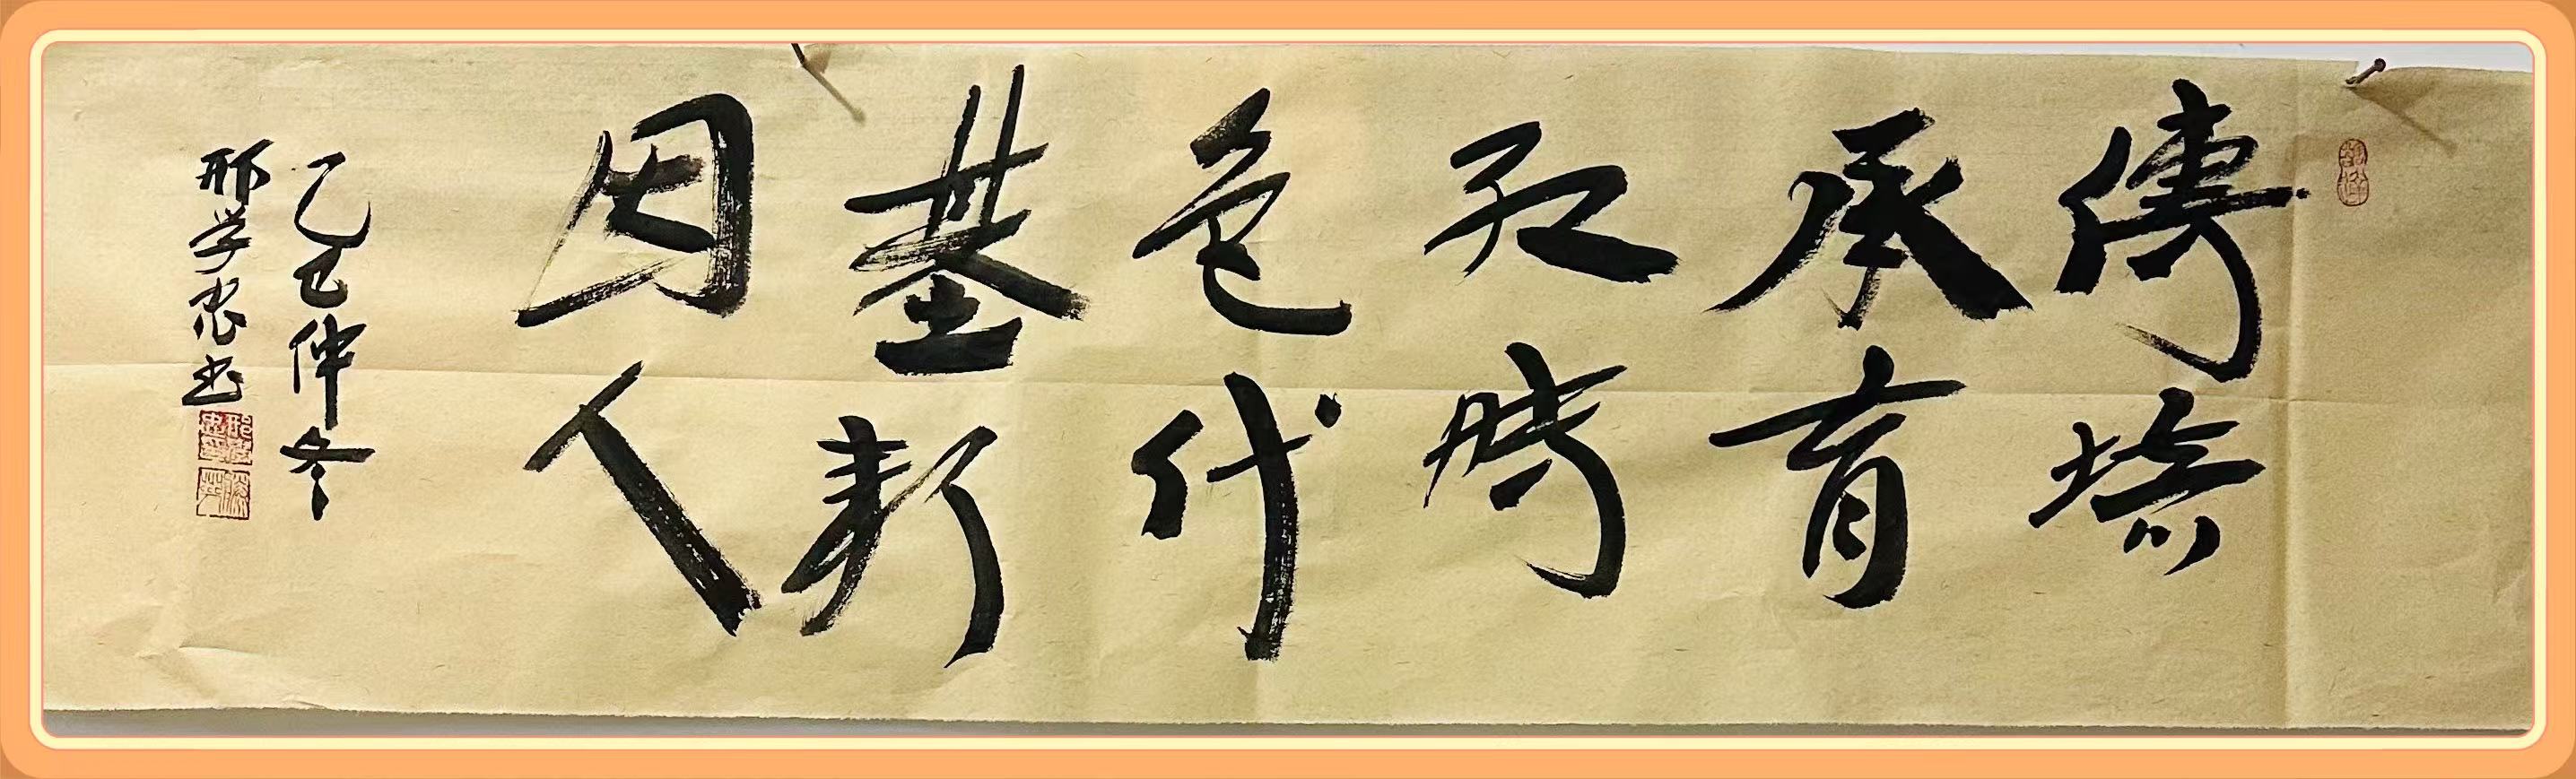 傳承红色基因
培育時代新人
乙巳仲冬
邢学忠书